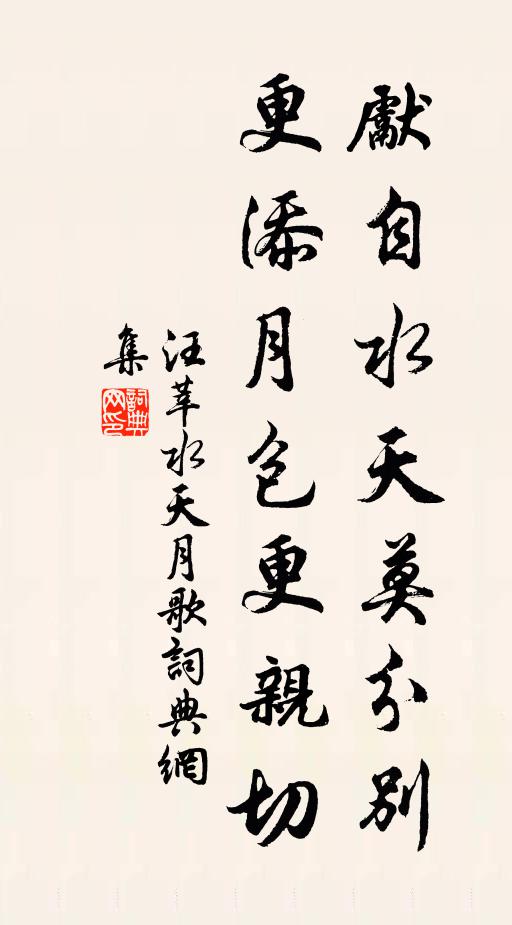 獻自水天莫分別
更添月色更親切
汪莘水天月歌詞典網
集
詞典
网印